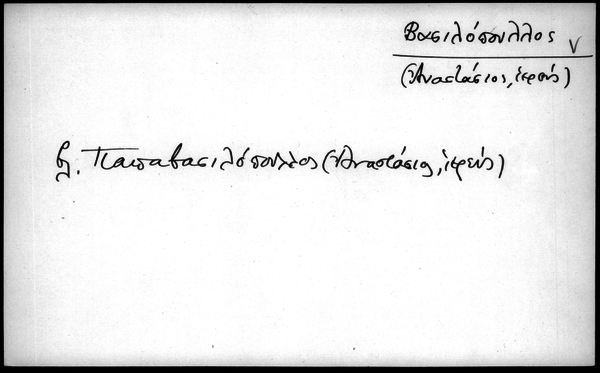 Βασιλόπουλλος v
(Ἀναστάσιος, ἱερεύς)
βλ. Παπαβασιλόπουλλος (Ἀναστάσιος, ἱερεύς)